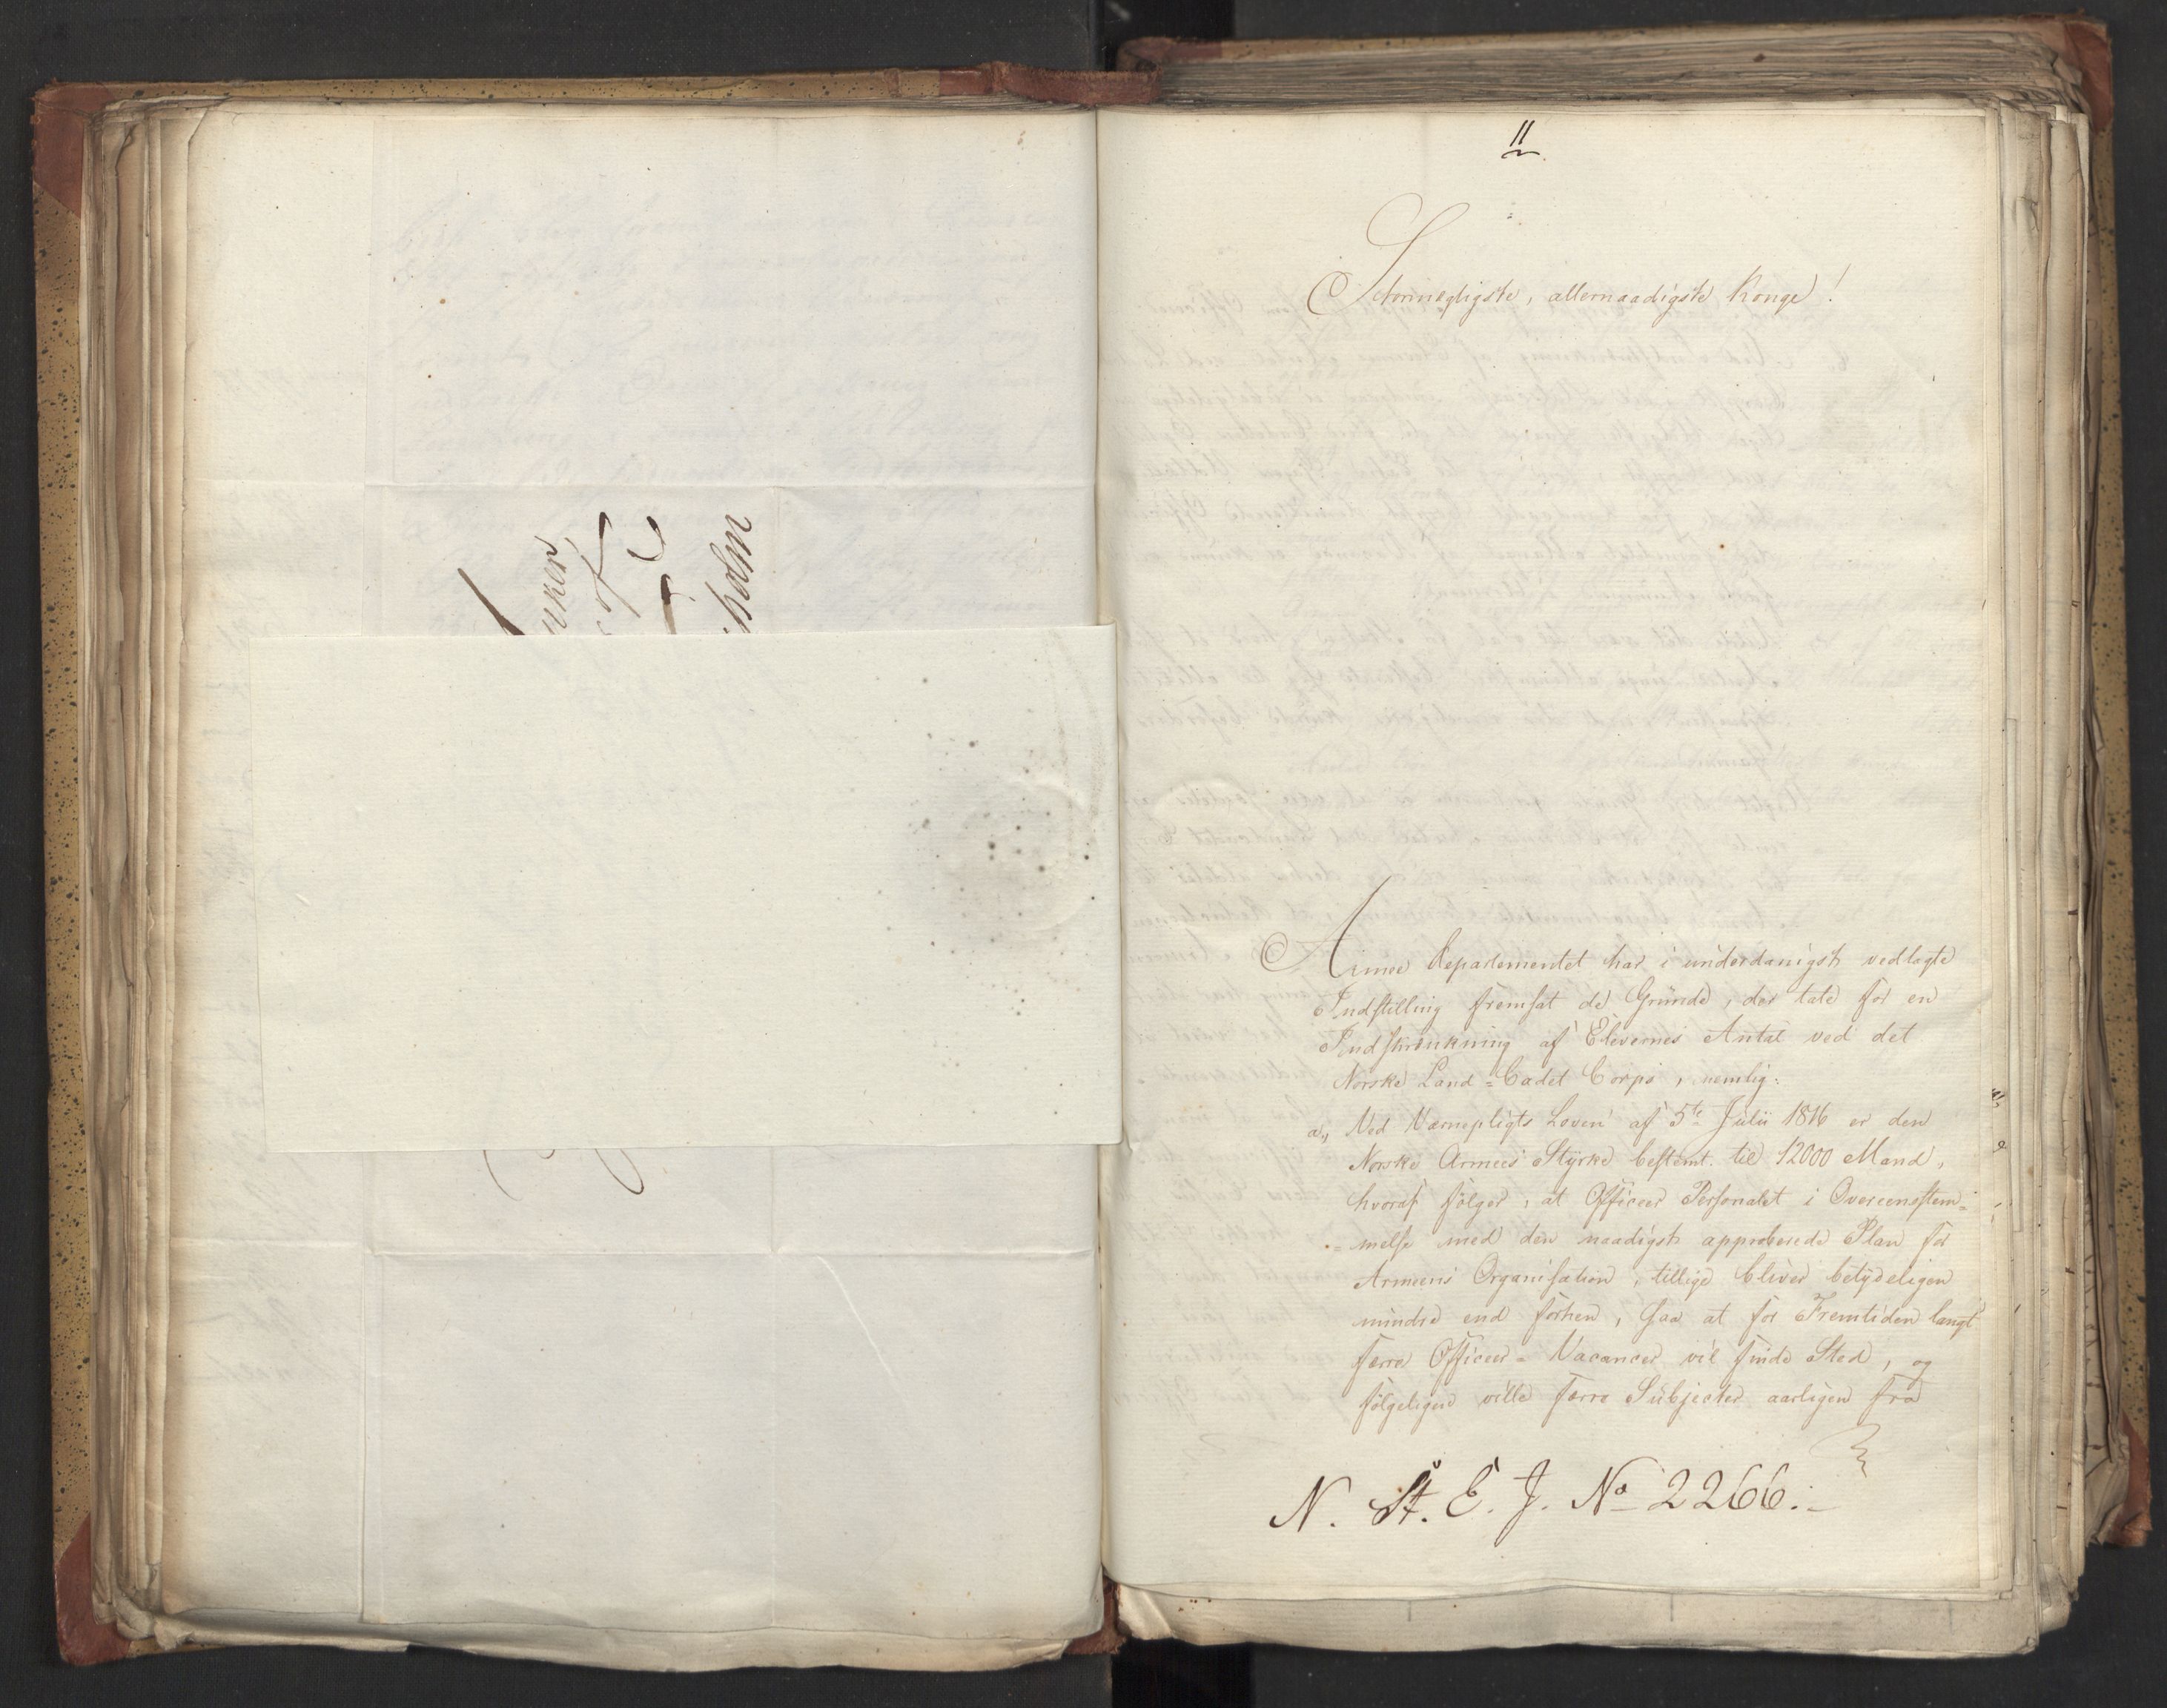 ukker,
holm
11
Stormægtigste, allernaadigste Konge!
Armee Departementet har i underdanigst vedlagte
Indstilling fremsat de Grunde, der tale for en
Indskrænkning af Elevernes Antal ved det
Norske Land-Cadet Corps, nemlig:
a,, Ved Værnepligts Loven af 5te Julii 1816 er den
Norske Armees Styrke bestemt til 12000 Mand,
hvoraf følger, at Officeer Personalet i Overeenstem=
=melse med den naadigst approberede Plan for
Armeens Organisation, tillige bliver betydeligen
mindre end forhen, saa at for Fremtiden langt
færre Officeer-Vacancer vil finde Sted, og
følgeligen ville færre Subjecter aarligen fra
N. St. E. J. No 2266.